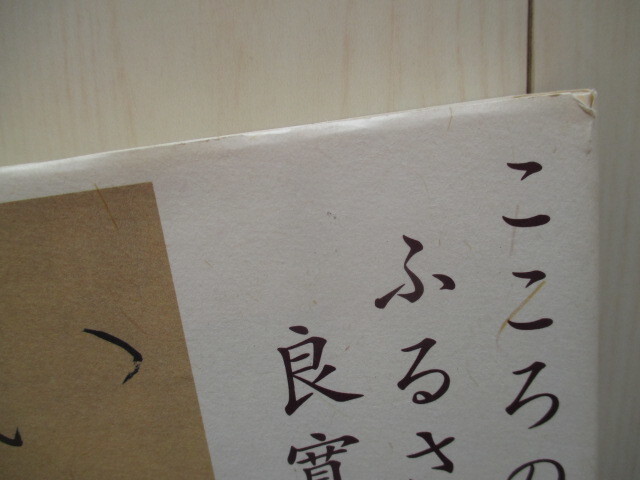 こころの
ふるさ
良寛